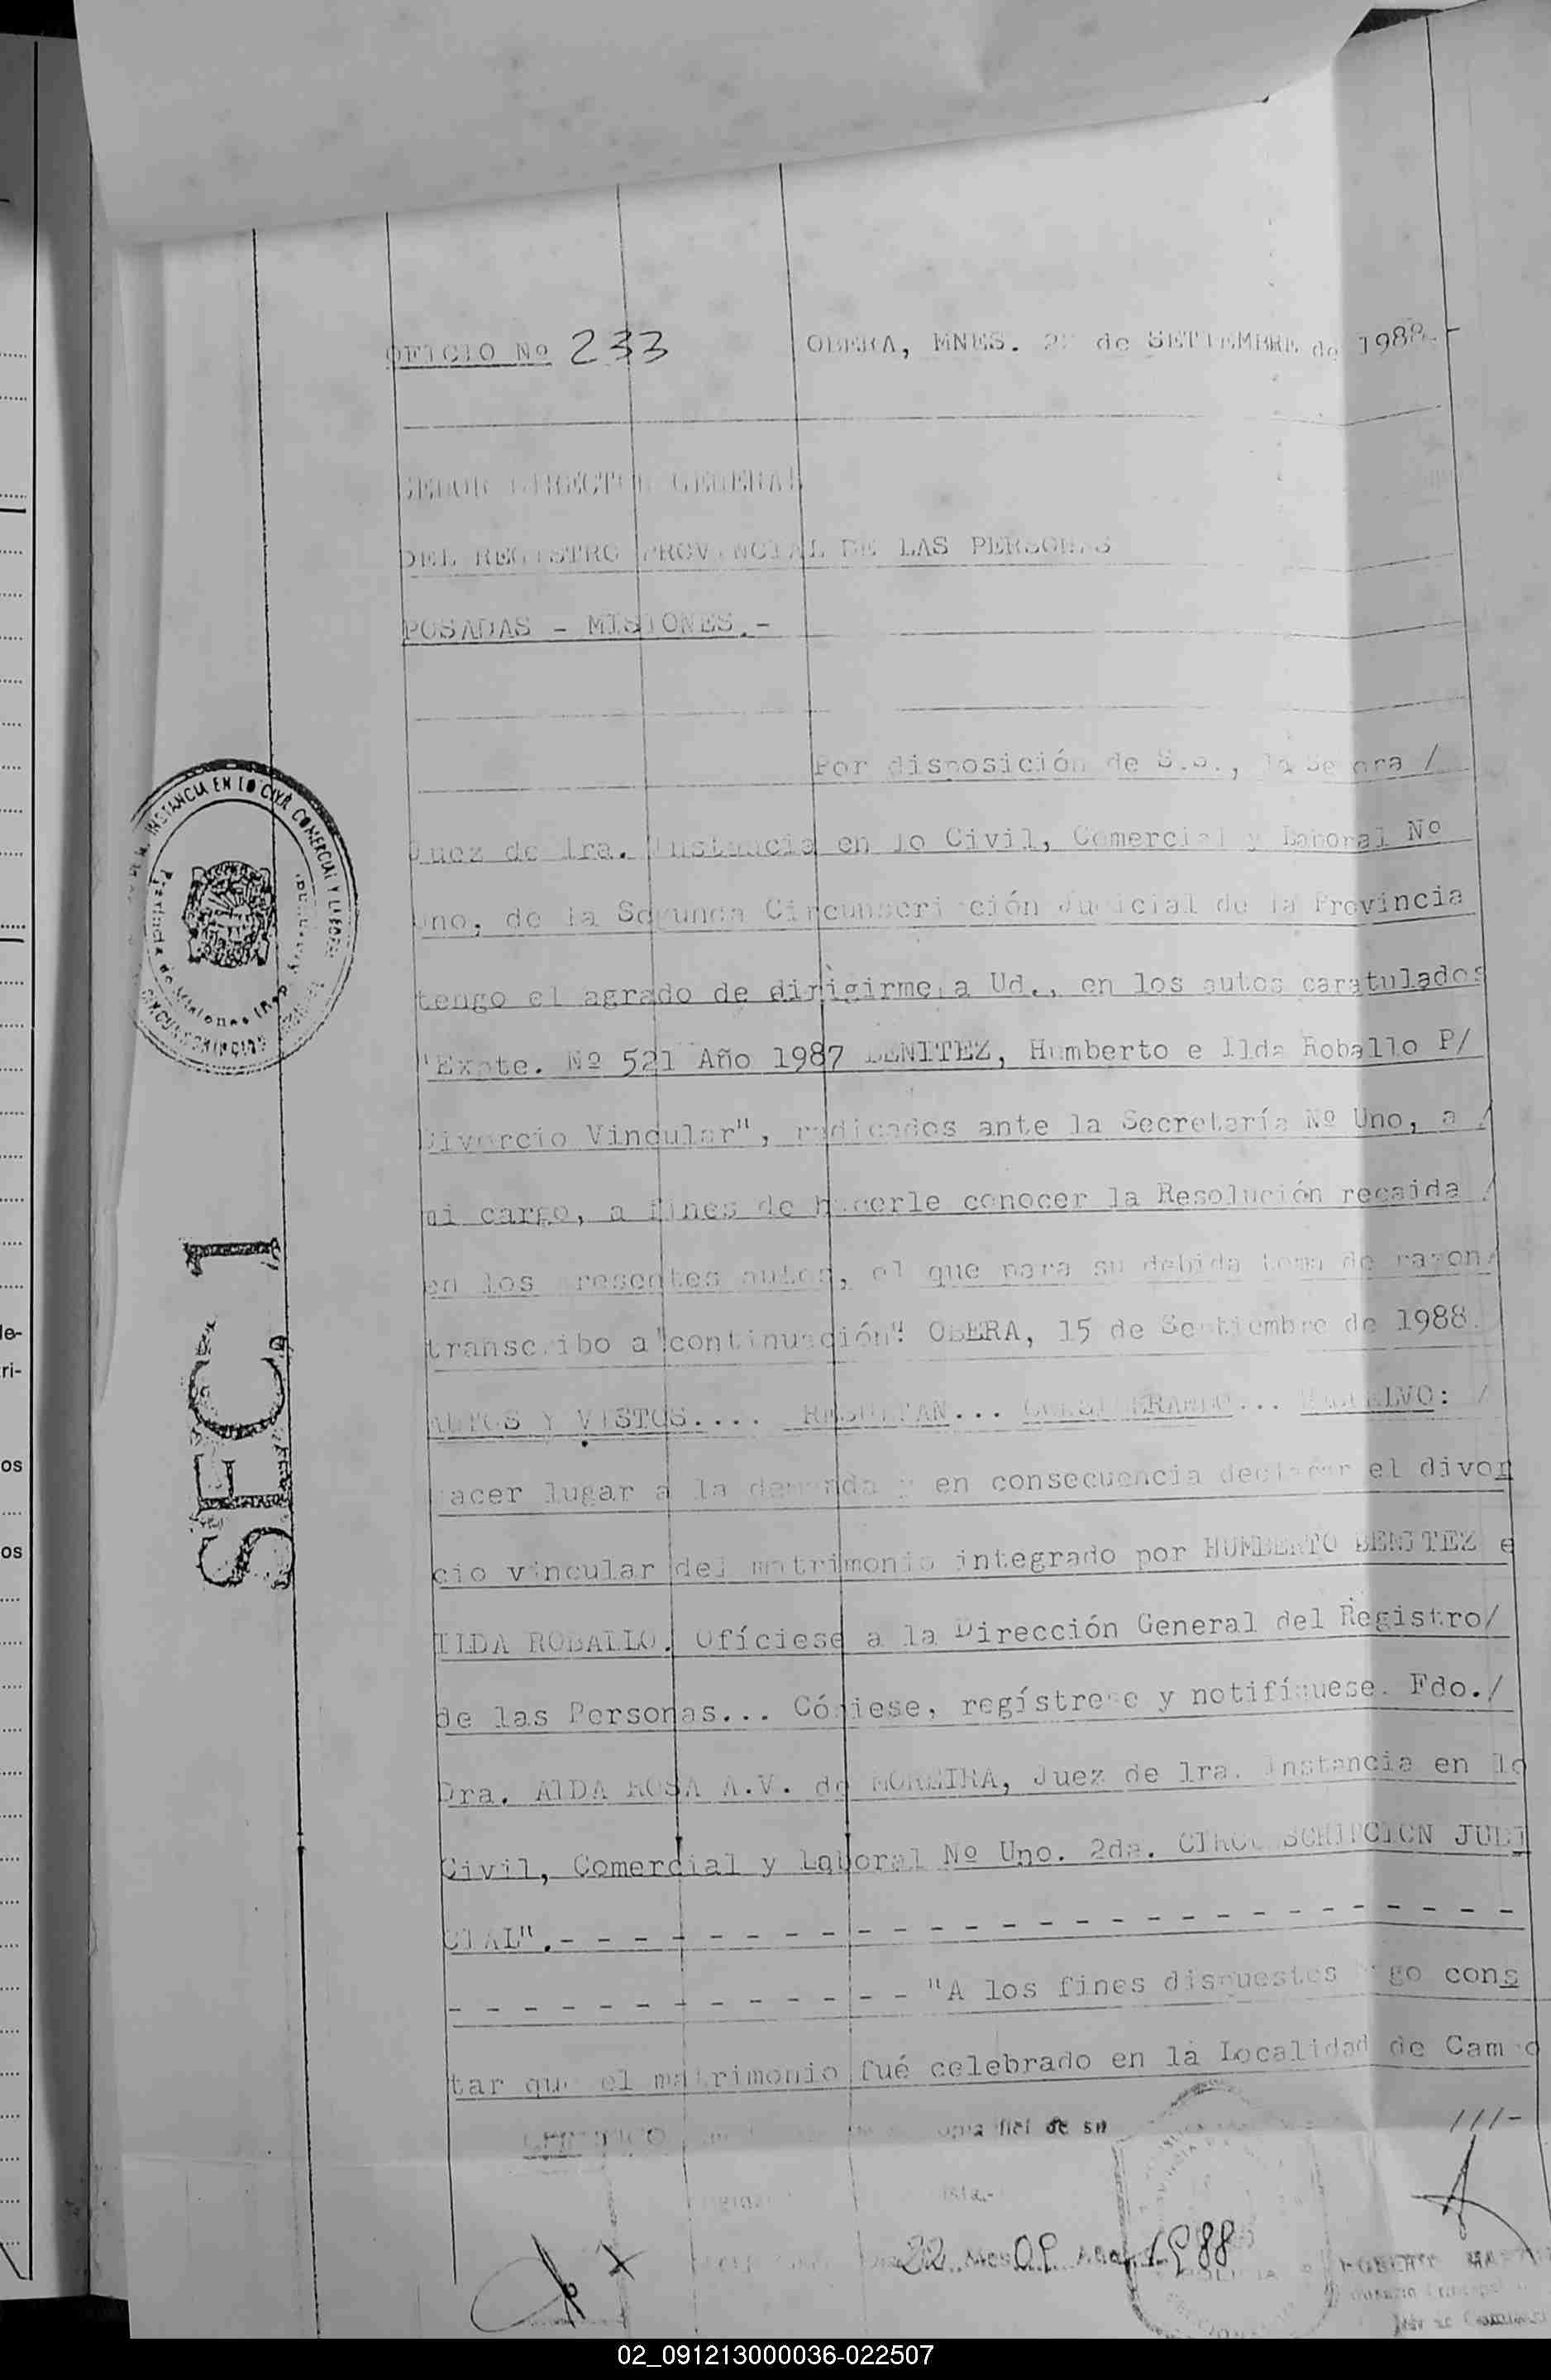 OFICIO Nº 233 OBERA, MNES. de SETIEMBRE de 1988.-
SEÑOR DIRECTOR GENERAL
DEL REGISTRO PROVINCIAL DE LAS PERSONAS
POSADAS - MISIONES.-
Por disposición de S.S., la Señora /
Juez de 1ra. Instancia en lo Civil, Comercial y Laboral Nº
Uno, de la Segunda Circunscripción Judicial de la Provincia
tengo el agrado de dirigirme a Ud., en los autos caratulados
"Expte. Nº 521 Año 1987 BENITEZ, Humberto e Ilda Roballo P/
Divorcio Vincular", radicados ante la Secretaría Nº Uno, a /
mi cargo, a fines de hacerle conocer la Resolución recaida /
en los presentes autos, el que para su debida toma de razon/
transcribo a "continuación": OBERA, 15 de Septiembre de 1988.
AUTOS Y VISTOS.... RESULTAN... CONSIDERANDO... RESUELVO: /
Hacer lugar a la demanda y en consecuencia declarar el divor
cio vincular del matrimonio integrado por HUMBERTO BENITEZ e
ILDA ROBALLO. Ofíciese a la Dirección General del Registro/
de las Personas... Cópiese, regístrese y notifíquese. Fdo./
Dra. AIDA ROSA A.V. de MOREIRA, Juez de 1ra. Instancia en lo
Civil, Comercial y Laboral Nº Uno. 2da. CIRCUNSCRIPCION JUDI
CIAL".- - - - - - - - - - - - - - - - - - - - - - - - - - -
- - - - - - - - - - - - - "A los fines dispuestos hago cons
tar que el matrimonio fué celebrado en la Localidad de Campo
///-
CERTIFICO copia fiel de su
22 Mes 09 Año 1988
INSTANCIA EN LO CIVIL COMERCIAL Y LABORAL
Provincia de Misiones
CIRCUNSCRIPCION
SEC. 1
02_091213000036-022507